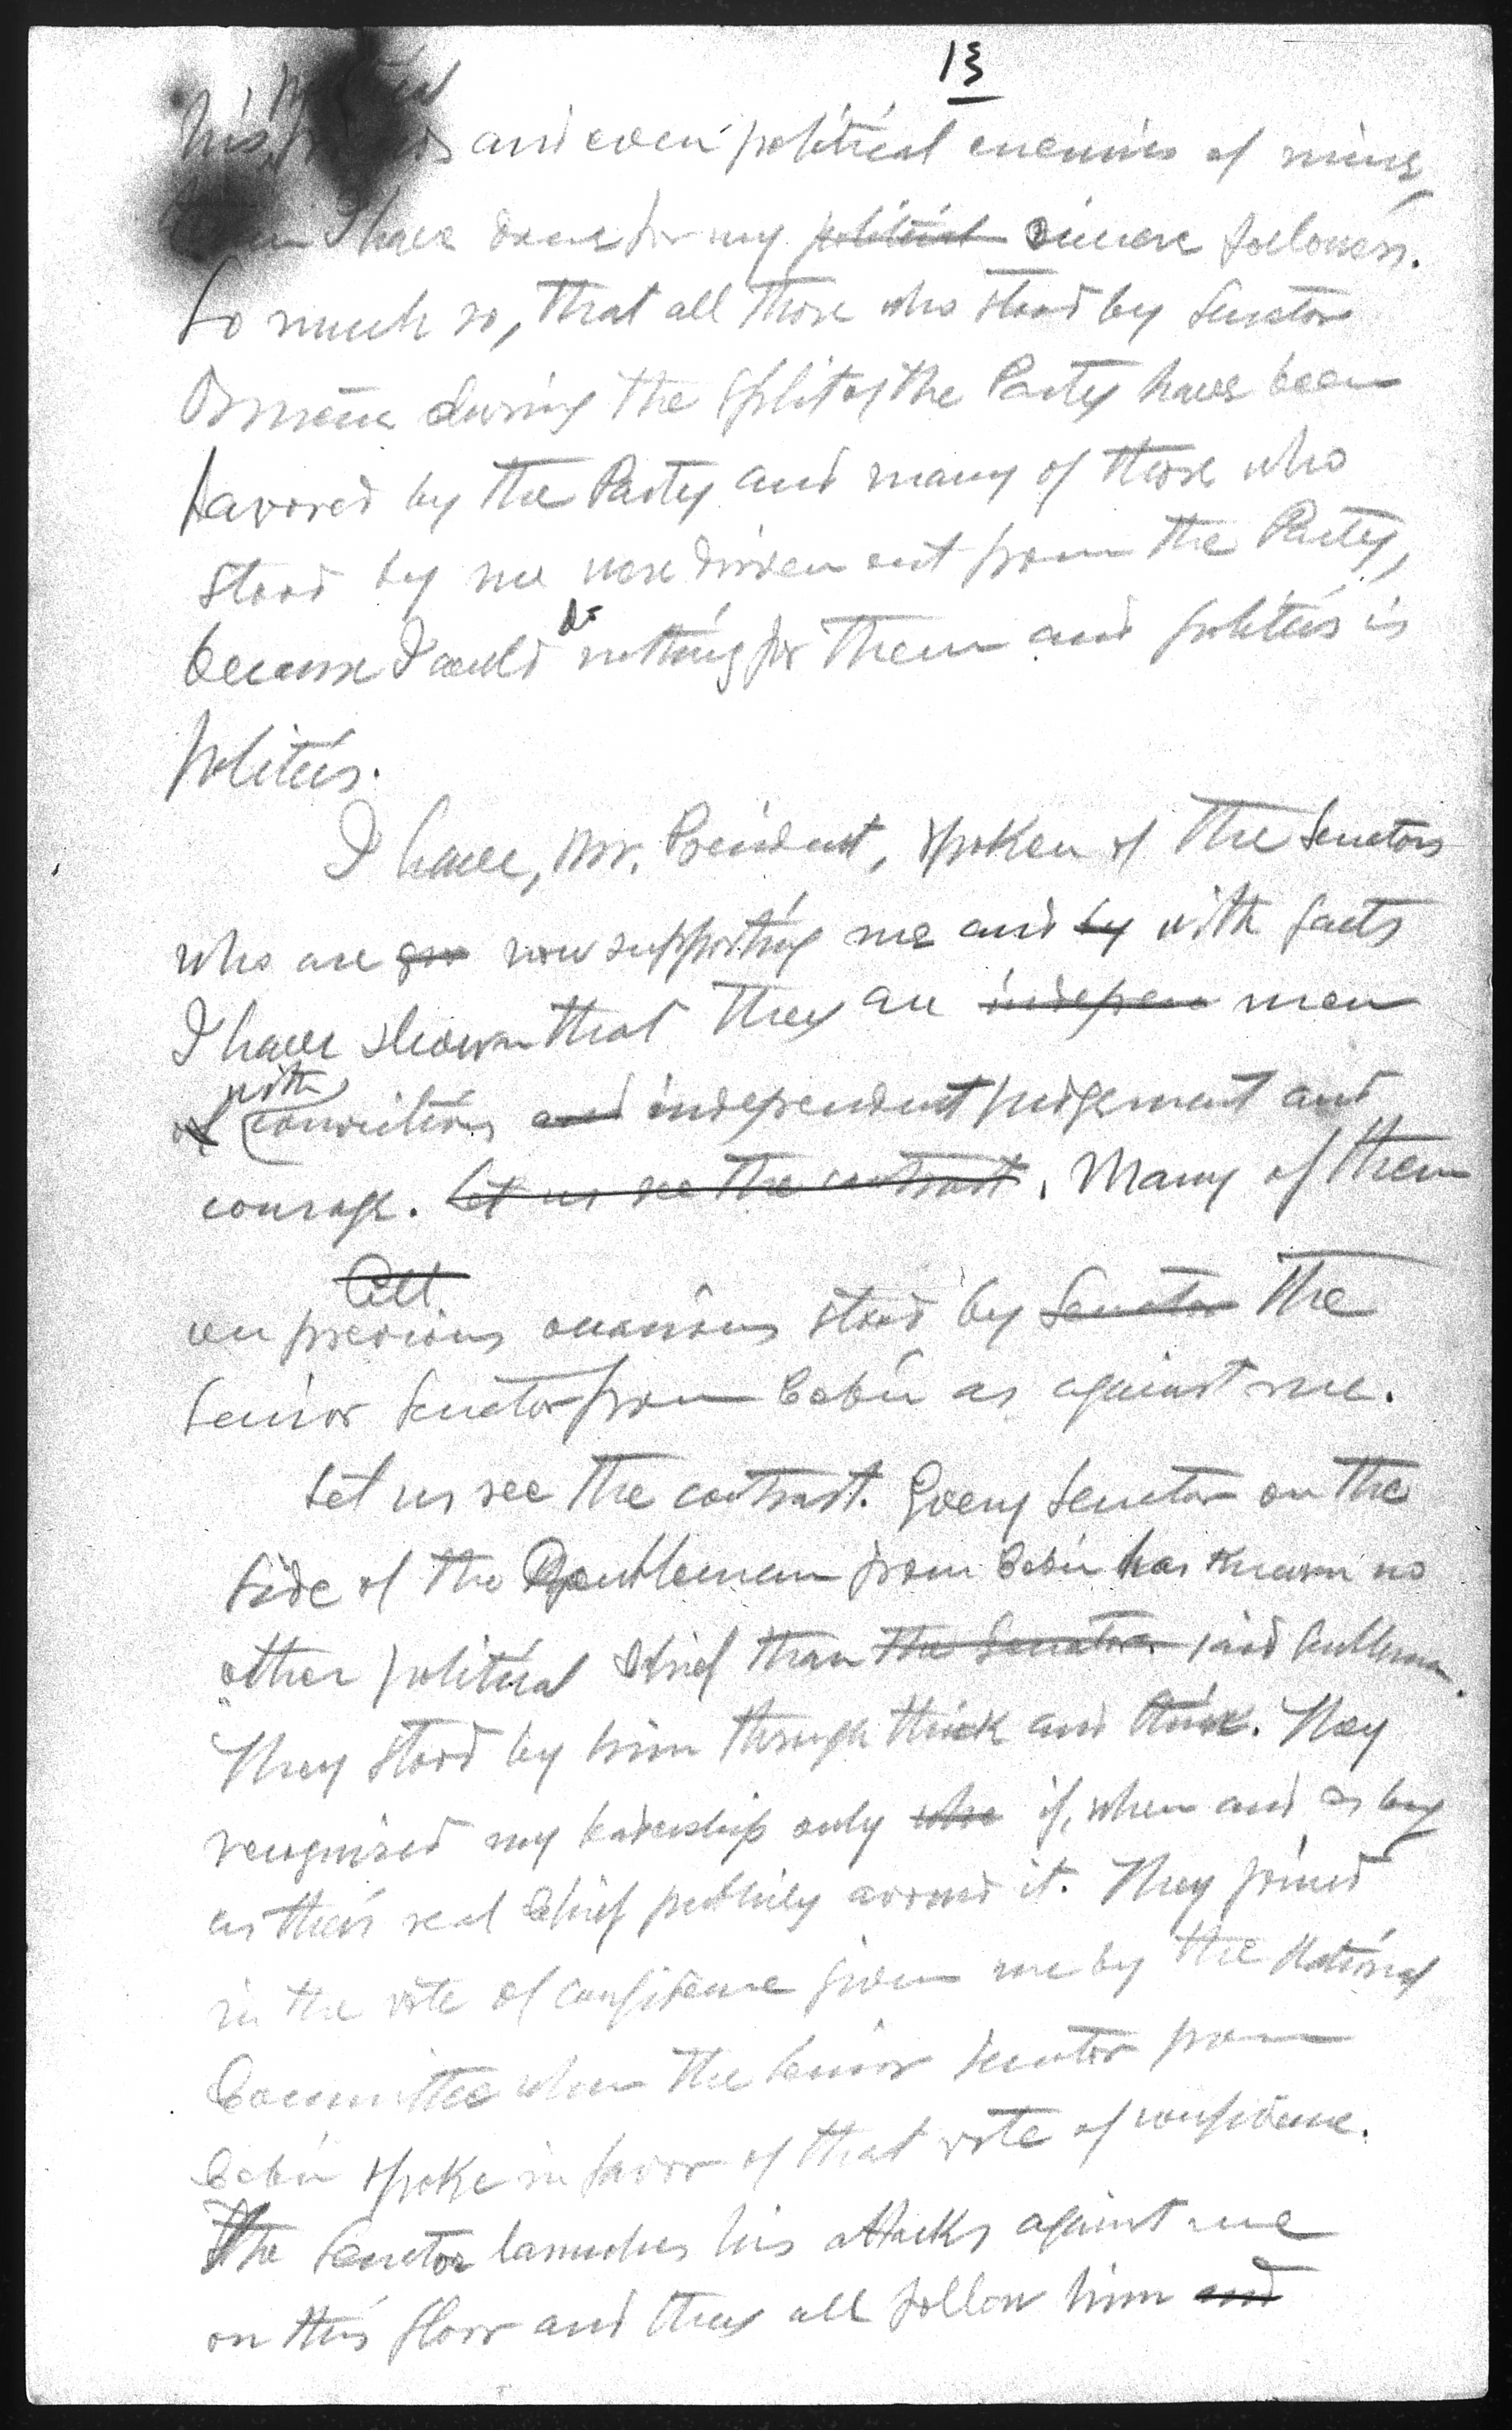 13
his and even political enemies of mine,
than I have done for my political sincere followers.
So much so, that all those who stood by Senator
Osmeña during the split of the Party have been
favored by the Party and many of those who
stood by me were driven out from the Party,
because I could do nothing for them and politics is
politics.
I have, Mr. President, spoken of the Senators
who are now supporting me and by with facts
I have shown that they are indepen men
of with convictions and independent judgement and
courage. Let us see the contrast. Many of them
All
on previous occasions stood by Senator the
Senior Senator from Cebú as against me.
Let us see the contrast. Every Senator on the
side of the Gentleman from Cebú has known no
other political chief than the Senator said Gentleman.
They stood by him through thick and thick. They
recognized my leadership only when if, when and as long
as their real chief publicly avowed it. They joined
in the vote of confidence given me by the National
Committee when the Senior Senator from
Cebú spoke in favor of that vote of confidence.
The Senator launches his attacks against me
on this floor and they all follow him and